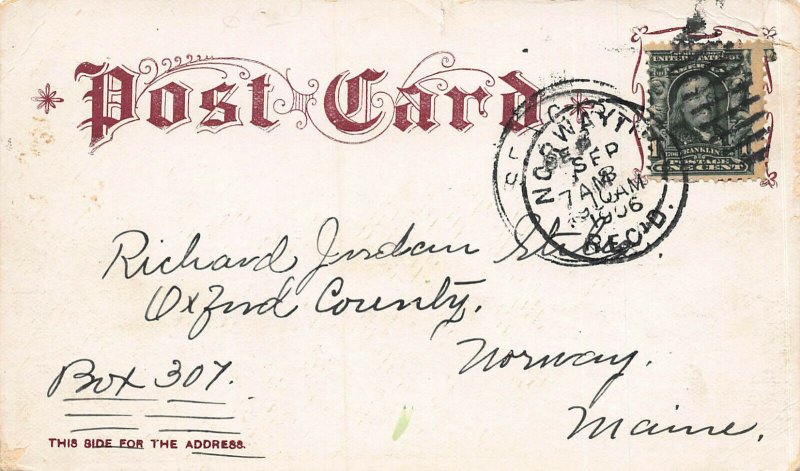 Post Card
UNITED STATES OF
AMERICA
FRANKLIN
POSTAGE
ONE CENT
NORWAY
SEP
8
7 AM
10 AM
1906
REC'D.
Richard Jordan
Oxford County,
Norway.
Box 307.
Maine.
THIS SIDE FOR THE ADDRESS.